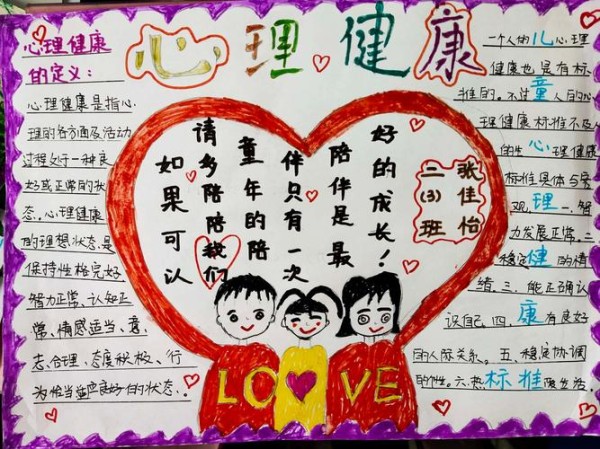 心理健康
心理健康
的定义：
心理健康是指心
理的各方面及活动
过程处于一种良
好或正常的状
态。心理健康
的理想状态是
保持性格完好
智力正常、认知正
常、情感适当、意
志合理、态度积极、行
为恰当
的状态。
如果可以
请多陪陪我们
童年的陪
伴只有一次
陪伴是最
好的成长！
二(3)班
张佳怡
LOVE
一个人的儿心理
健康也是有标
准的。不过童人的心
理健康标准不及
的生心理健康
标准具体与客
观。理一、智
力发展正常。二
稳定健的情
绪。三、能正确认
识自己。四、康有良好
的人际关系。五、稳定协调
的个性。六、热标准
生活